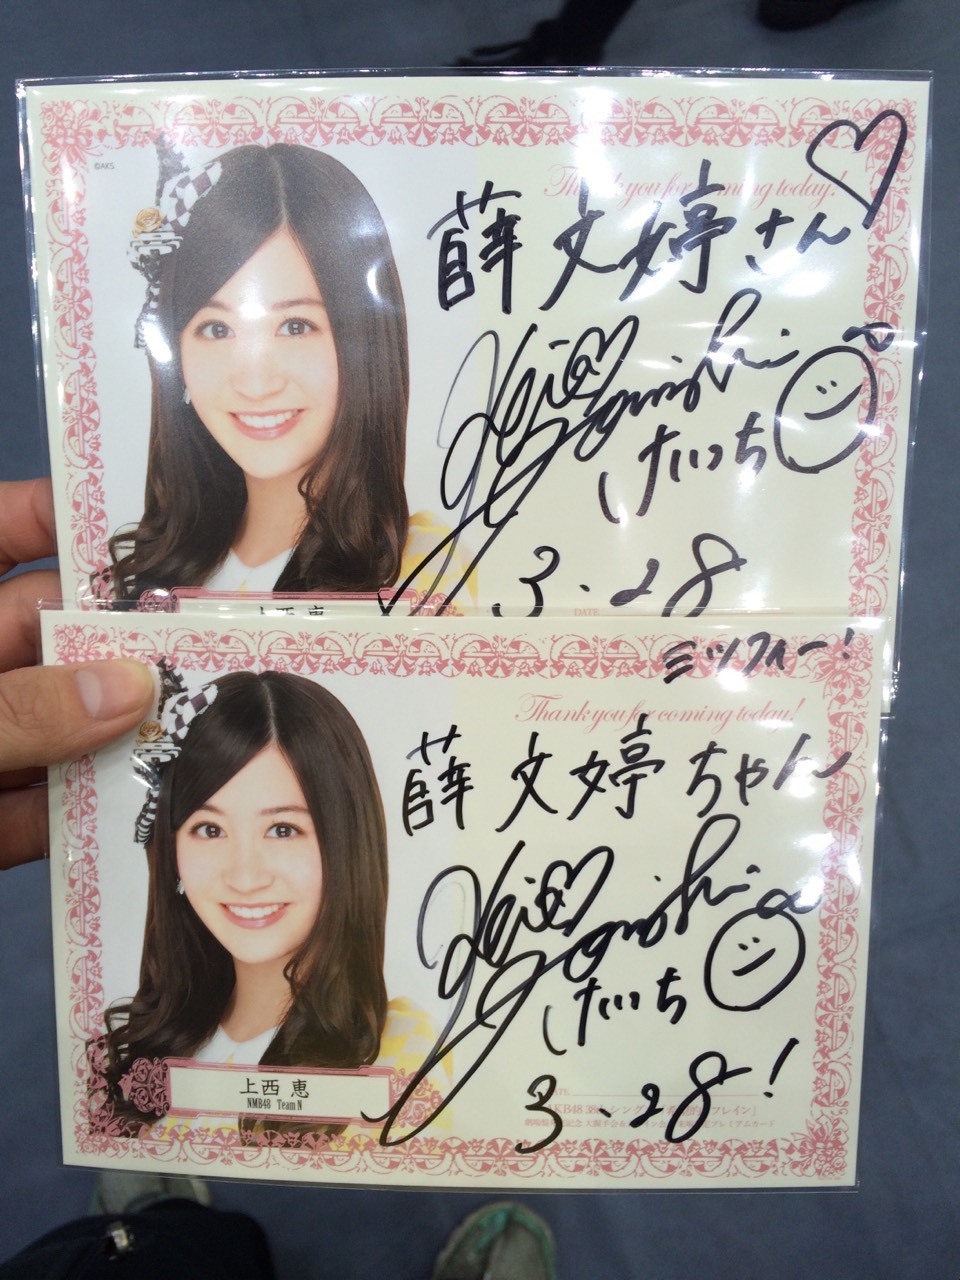 ©AKS
Thank you for coming today!
薛文婷さん
Kei Jonishi
けいっち
DATE
3.28
上西 恵
ミッフィー!
Thank you for coming today!
薛文婷ちゃん
Kei Jonishi
けいっち
上西 恵
NMB48 Team N
DATE
3.28!